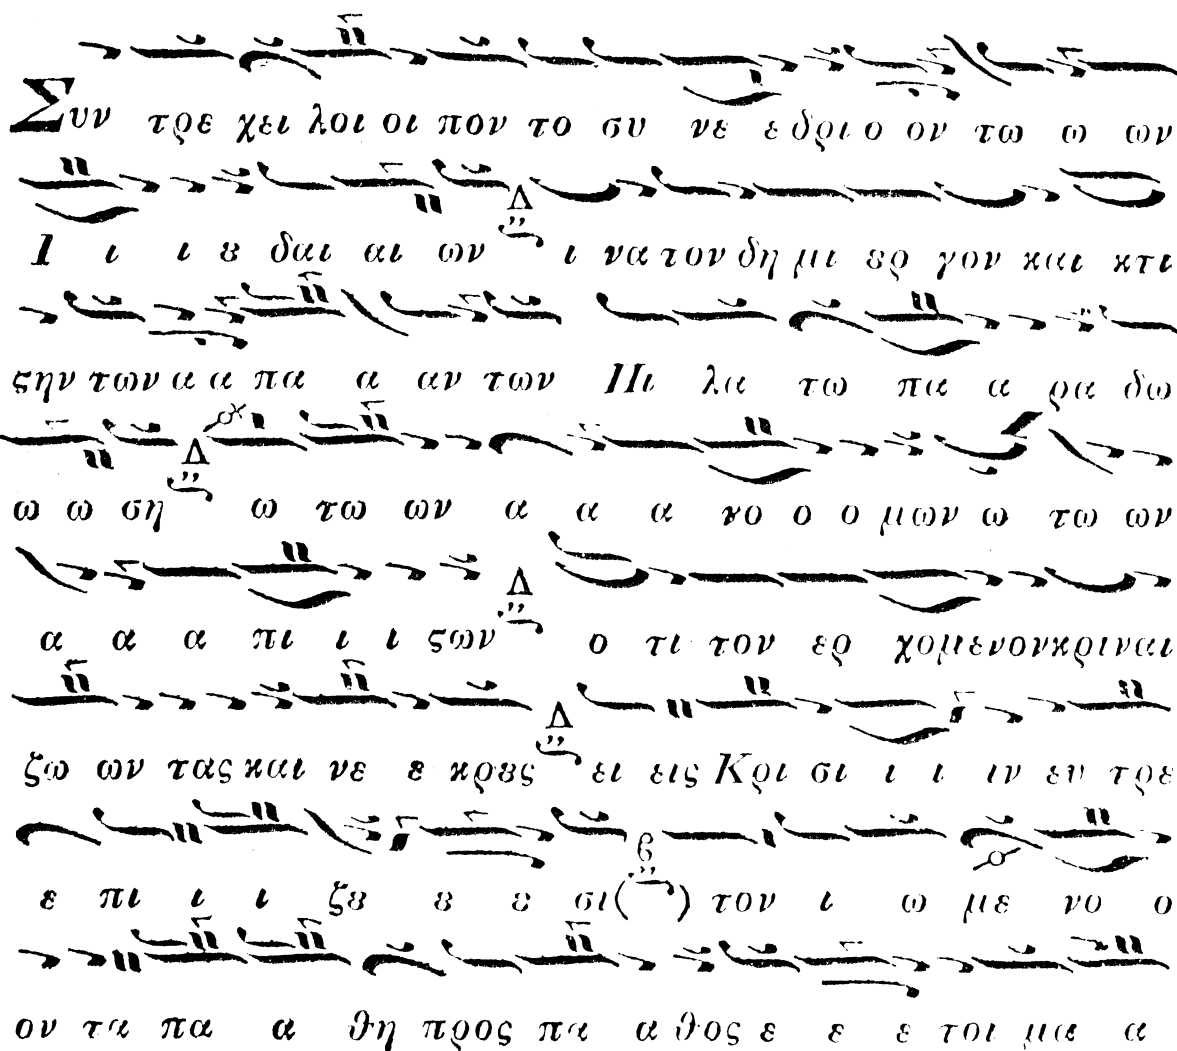 Συν τρε χει λοι οι πον το συ νε ε δρι ο ον τω ω ων
Ι ι ι ȣ δαι αι ων ι να τον δη μι ȣρ γον και κτι
ςην των α α πα α αν των Πι λα τω πα α ρα δω
ω ω ση ω τω ων α α α νο ο ο μων ω τω ων
α α α πι ι ι ςων ο τι τον ερ χομενονκριναι
ζω ων τας και νε ε κρȣς ει εις Κρι σι ι ι ιν ευ τρε
ε πι ι ι ζȣ ȣ ȣ σι( ) τον ι ω με νο ο
ον τα πα α θη προς πα α θος ε ε ε τοι μα α